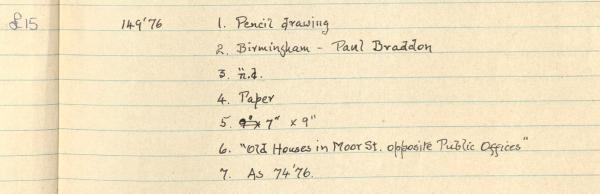 £15 149'76 1. Pencil drawing
2. Birmingham - Paul Braddon
3. n.d.
4. Paper
5. 7" x 9"
6. "Old Houses in Moor St. opposite Public Offices"
7. As 74'76.